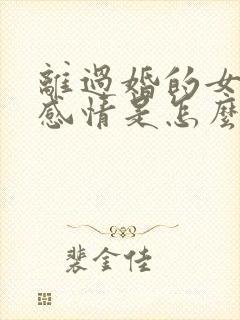 離過婚的女
感情是怎麼
裴金佳